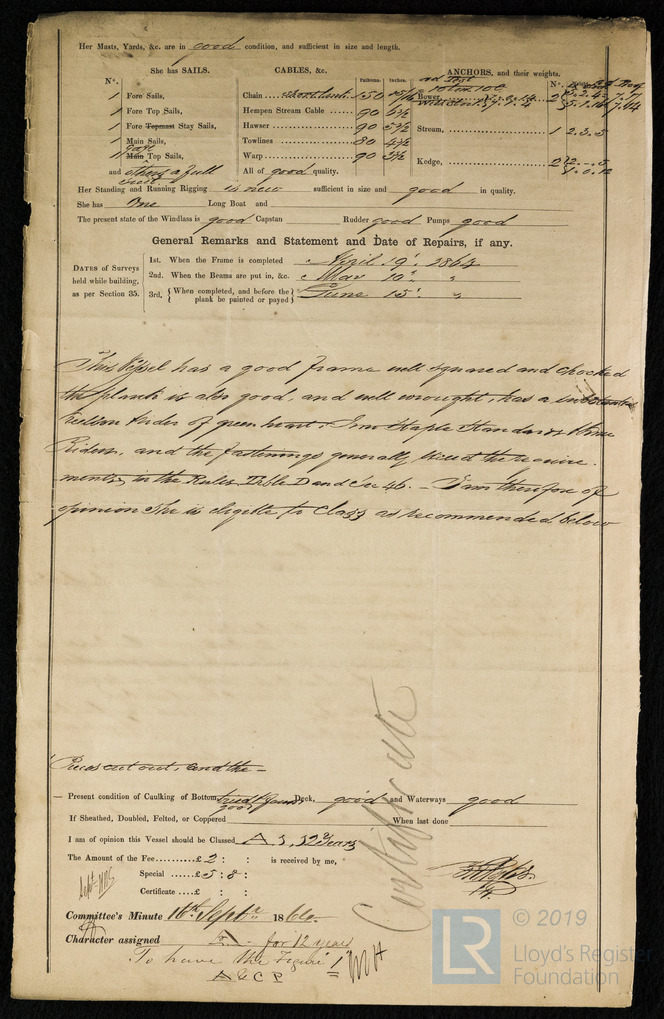 Her Masts, Yards, &c. are in good condition, and sufficient in size and length.
She has SAILS.
CABLES, &c.
Fathoms.
Inches.
ANCHORS, and their weights.
Nº.
Nº.
1 Fore Sails,
1 Fore Top Sails,
1 Fore Topmast Stay Sails,
1 Main Sails,
Gaff
1 Main Top Sails,
and others a full
Chain short link 150 15/16
Hempen Stream Cable 90 6½
Hawser 90 5½
Towlines 80 4½
Warp 90 3½
All of good quality.
Bower, 2
Stream, 1 2.3.5
Kedge, 2
1.0.12
Her Standing and Running Rigging is new sufficient in size and good in quality.
She has One Long Boat and
The present state of the Windlass is good Capstan Rudder good Pumps good
General Remarks and Statement and Date of Repairs, if any.
DATES of Surveys held while building, as per Section 35.
1st. When the Frame is completed April 19. 1864
2nd. When the Beams are put in, &c. May 10 "
3rd. { When completed, and before the plank be painted or payed } June 15 "
This Vessel has a good frame well squared and chocked
the plank is also good, and well wrought, has a
Keelson of green heart. Iron Staple Standards
Riders, and the fastenings generally exceed the require-
ments, in the Rules Table D and Sec 46. - I am therefore of
opinion She is eligible to Class as recommended below
cut out, and the -
Present condition of Caulking of Bottom good Deck, good and Waterways good
If Sheathed, Doubled, Felted, or Coppered When last done
I am of opinion this Vessel should be Classed A 1, 12 Years
The Amount of the Fee £ 2 : : is received by me,
Special £ 5 : 8 :
Certificate £ : :
Certificate
Committee's Minute 16th Septr 1864
Character assigned A - for 12 years
To have the Figure 1
A & C P
© 2019
LR
Lloyd's Register
Foundation